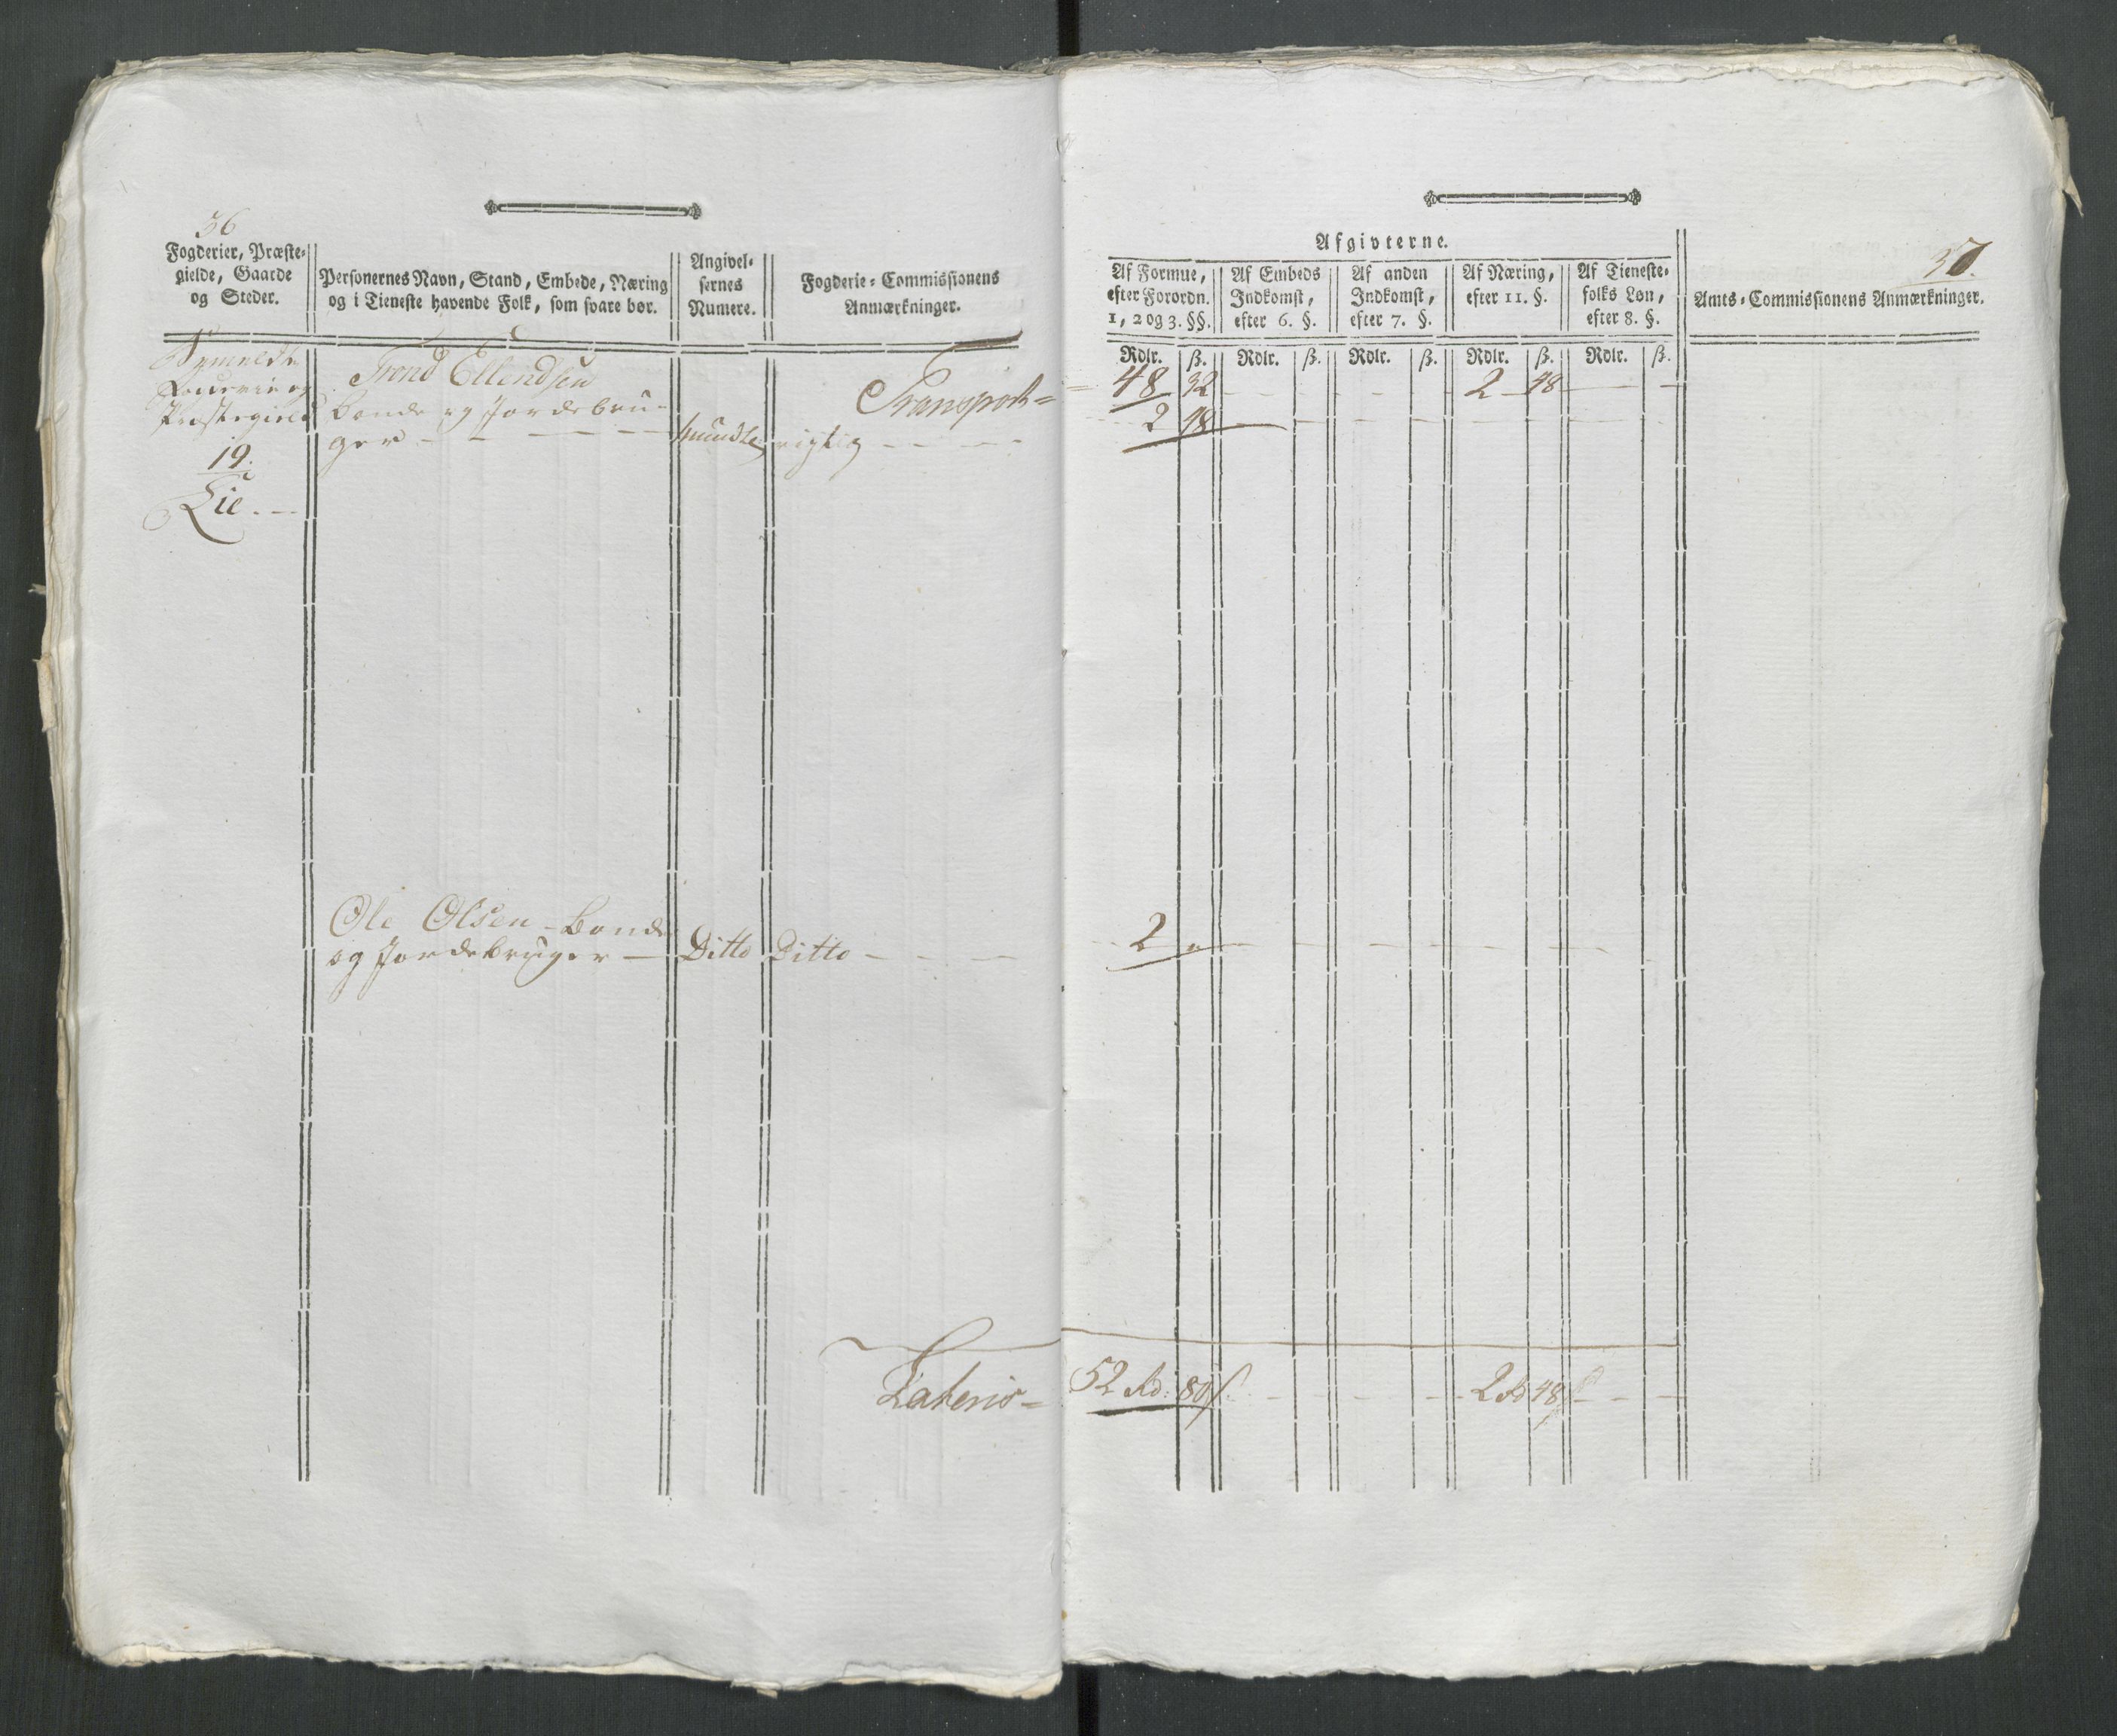 36
Fogderier, Præste-
gielde, Gaarde
og Steder.
Personernes Navn, Stand, Embede, Næring
og i Tieneste havende Folk, som svare bør.
Angivel-
sernes
Numere.
Fogderie-Commissionens
Anmærkninger.
Præstegield
19.
Lie. -
Trond Ellendsen
Bonde og Jordebru-
ger - - - -
mundtlig
rigtig - - - -
Transport =
Ole Olsen - Bonde
og Jordebruger - Ditto Ditto - - -
Lateris =
37.
Afgivterne.
Af Formue,
efter Forordn.
1, 2 og 3. §§.
Af Embeds
Indkomst,
efter 6. §.
Af anden
Indkomst,
efter 7. §.
Af Næring,
efter 11. §.
Af Tieneste-
folks Løn,
efter 8. §.
Amts-Commissionens Anmærkninger.
Rdlr. ß. Rdlr. ß. Rdlr. ß. Rdlr. ß. Rdlr. ß.
48 32 - - - - 2 48 - -
2 48 - - - - - -
2 „ - - - - - -
52 Rd: 80 ß - - - - 2 Rd 48 ß - -